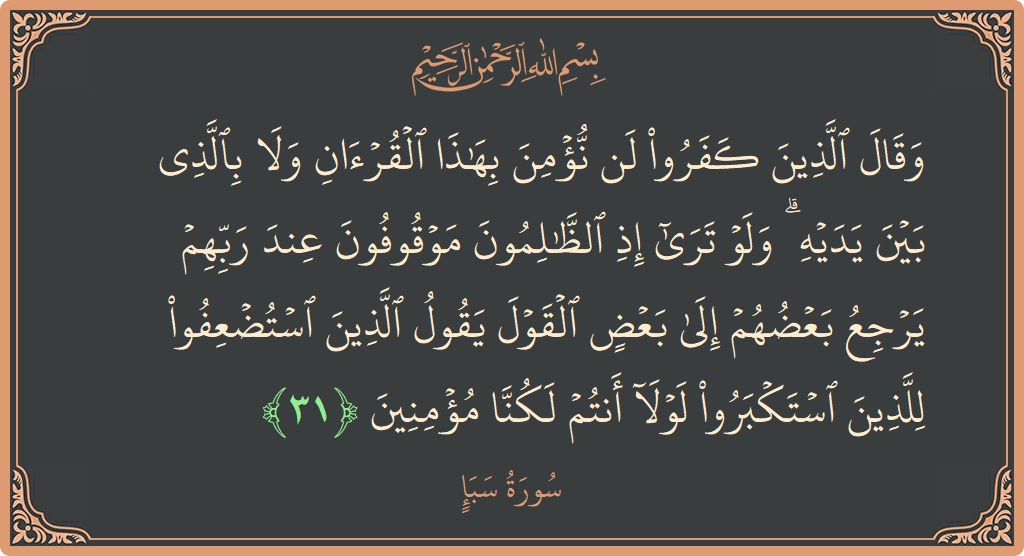 بِسْمِ اللَّهِ الرَّحْمَٰنِ الرَّحِيمِ
وَقَالَ ٱلَّذِينَ كَفَرُوا۟ لَن نُّؤْمِنَ بِهَـٰذَا ٱلْقُرْءَانِ وَلَا بِٱلَّذِى
بَيْنَ يَدَيْهِ ۗ وَلَوْ تَرَىٰٓ إِذِ ٱلظَّـٰلِمُونَ مَوْقُوفُونَ عِندَ رَبِّهِمْ
يَرْجِعُ بَعْضُهُمْ إِلَىٰ بَعْضٍ ٱلْقَوْلَ يَقُولُ ٱلَّذِينَ ٱسْتُضْعِفُوا۟
لِلَّذِينَ ٱسْتَكْبَرُوا۟ لَوْلَآ أَنتُمْ لَكُنَّا مُؤْمِنِينَ ﴿٣١﴾
سُورَةُ سَبَإٍ